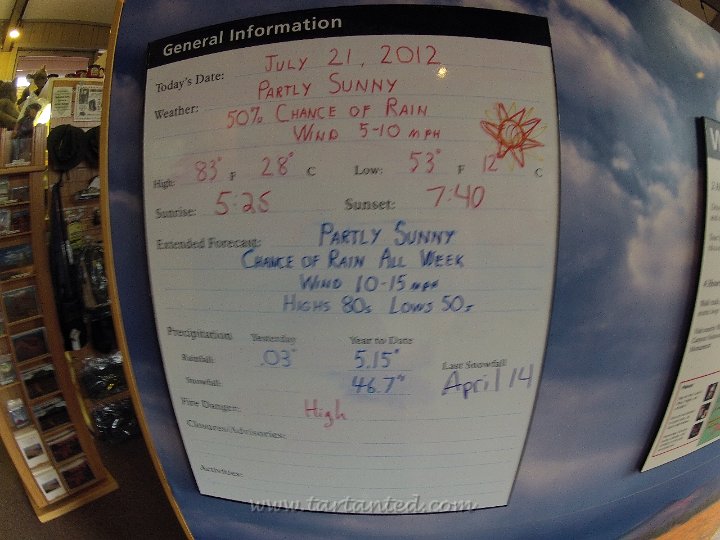 General Information
Today's Date: JULY 21, 2012
Weather: PARTLY SUNNY
50% CHANCE OF RAIN
WIND 5-10 MPH
High: 83° F 28° C Low: 53° F 12° C
Sunrise: 5:25 Sunset: 7:40
Extended Forecast: PARTLY SUNNY
CHANCE OF RAIN ALL WEEK
WIND 10-15 MPH
HIGHS 80s LOWS 50s
Precipitation Yesterday Year to Date
Rainfall: .03" 5.15" Last Snowfall
Snowfall: 46.7" April 14
Fire Danger: High
Closures/Advisories:
Activities:
www.tartanted.com